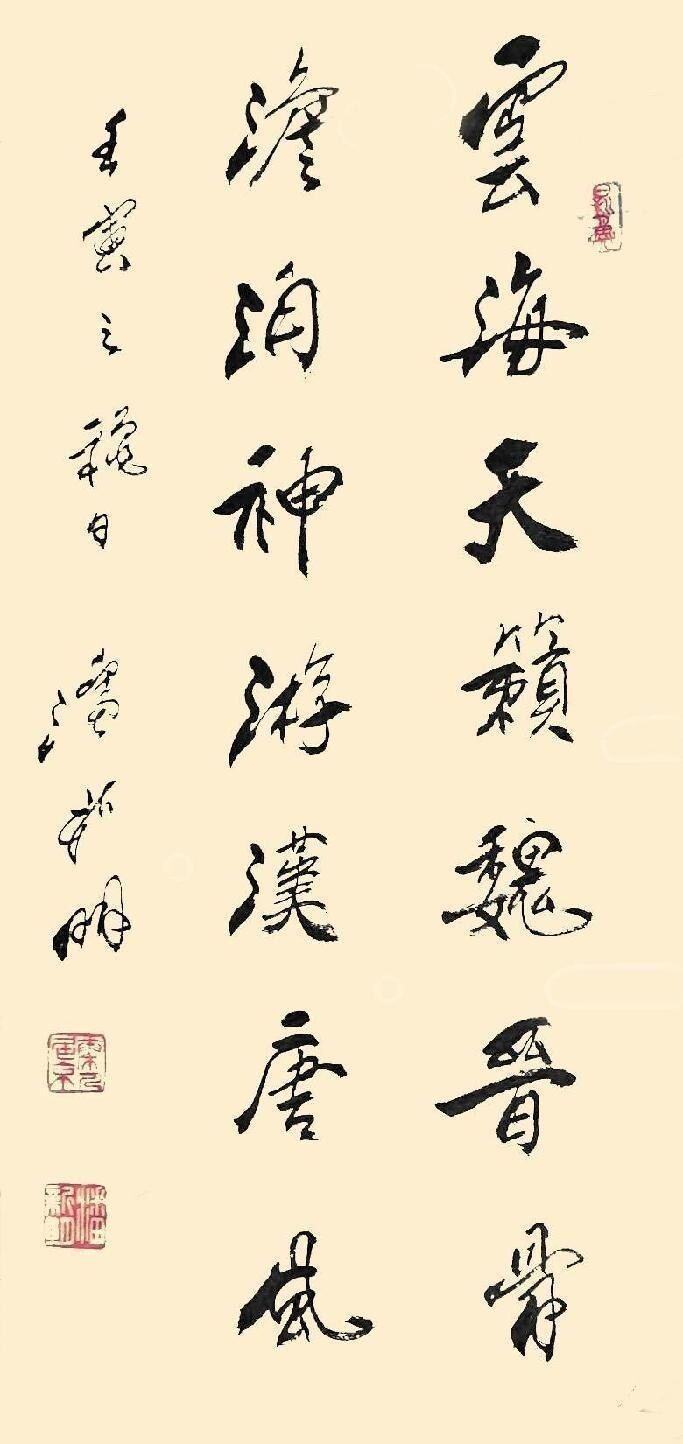 雲海天籟魏晉骨
澹泊神游漢唐風
壬寅之穐日 潘新明